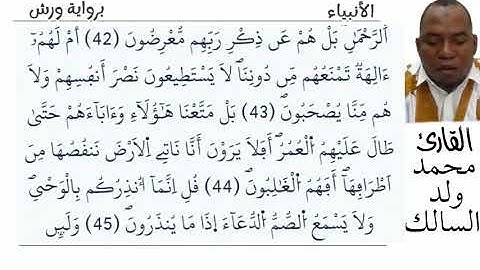 الأنبياء برواية ورش
اَ۬لرَّحْمَٰنِۖ بَلْ هُمْ عَن ذِكْرِ رَبِّهِم مُّعْرِضُونَ (42) أَمْ لَهُمُۥٓ
ءَالِهَةٞ تَمْنَعُهُم مِّن دُونِنَاۖ لَا يَسْتَطِيعُونَ نَصْرَ أَنفُسِهِمْ وَلَا
هُم مِّنَّا يُصْحَبُونَۖ (43) بَلْ مَتَّعْنَا هَٰٓؤُلَآءِ وَءَابَآءَهُمْ حَتَّىٰ
طَالَ عَلَيْهِمُ اُ۬لْعُمُرُۖ أَفَلَا يَرَوْنَ أَنَّا نَاتِے اِ۬لَارْضَ نَنقُصُهَا مِنَ
اَطْرَافِهَآۖ أَفَهُمُ اُ۬لْغَٰلِبُونَۖ (44) قُلِ اِنَّمَآ أُنذِرُكُم بِالْوَحْيِۖ
وَلَا يَسْمَعُ اُ۬لصُّمُّ اُ۬لدُّعَآءَ اِذَا مَا يُنذَرُونَۖ (45) وَلَئِن
القارئ
محمد
ولد
السالك